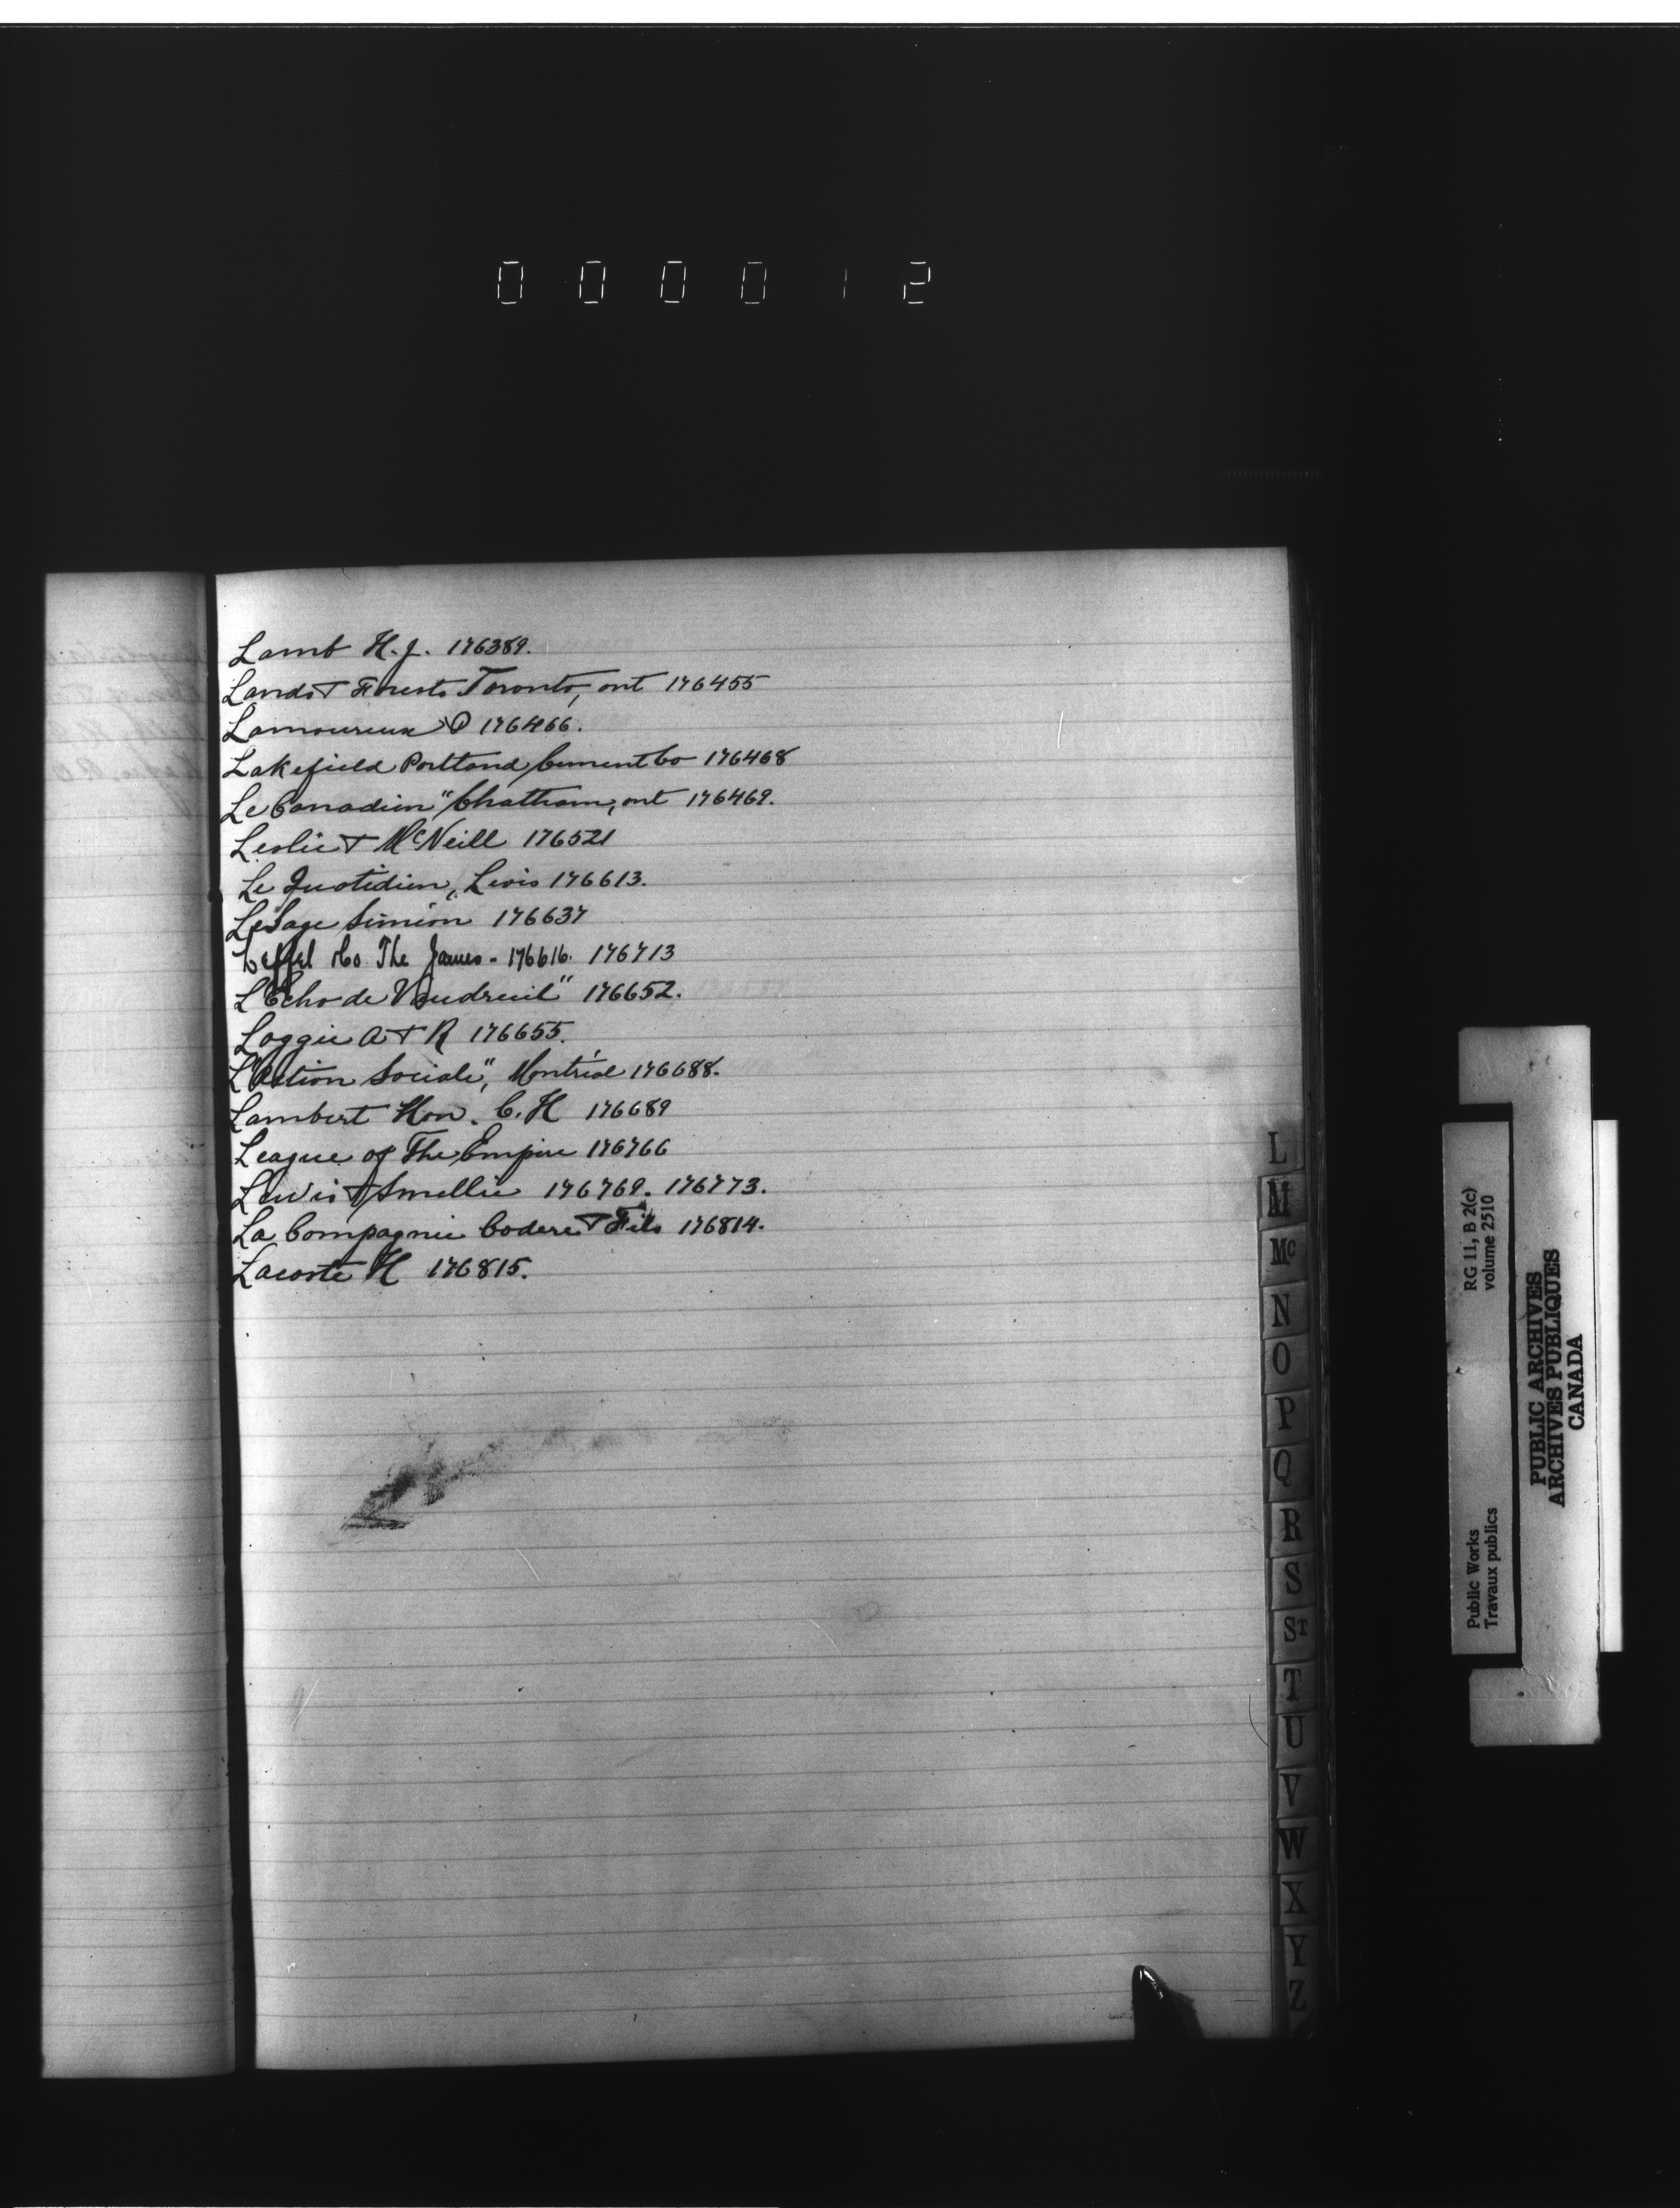 000012
Lamb H. J. 176389.
Lands & Forests Toronto, ont 176455
Lamoureux O 176466.
Lakefield Portland Cement Co 176468
Le Canadien" Chatham, ont 176469.
Leslie & McNeill 176521
Le Quotidien, Levis 176613.
LeSage Simeon 176637
Leffel Co. The James - 176616. 176713
L"Echo de Vaudreuil" 176652.
Loggie A & R 176655.
L"Action Sociale", Montréal 176688.
Lambert Hon. C. H 176689
League of The Empire 176766
Lewis & Smellie 176769. 176773.
La Compagnie Codere & Fils 176814.
Lacoste H 176815.
L
M
Mc
N
O
P
Q
R
S
ST
T
U
V
W
X
Y
Z
Public Works
Travaux publics
RG 11, B 2(c)
volume 2510
PUBLIC ARCHIVES
ARCHIVES PUBLIQUES
CANADA